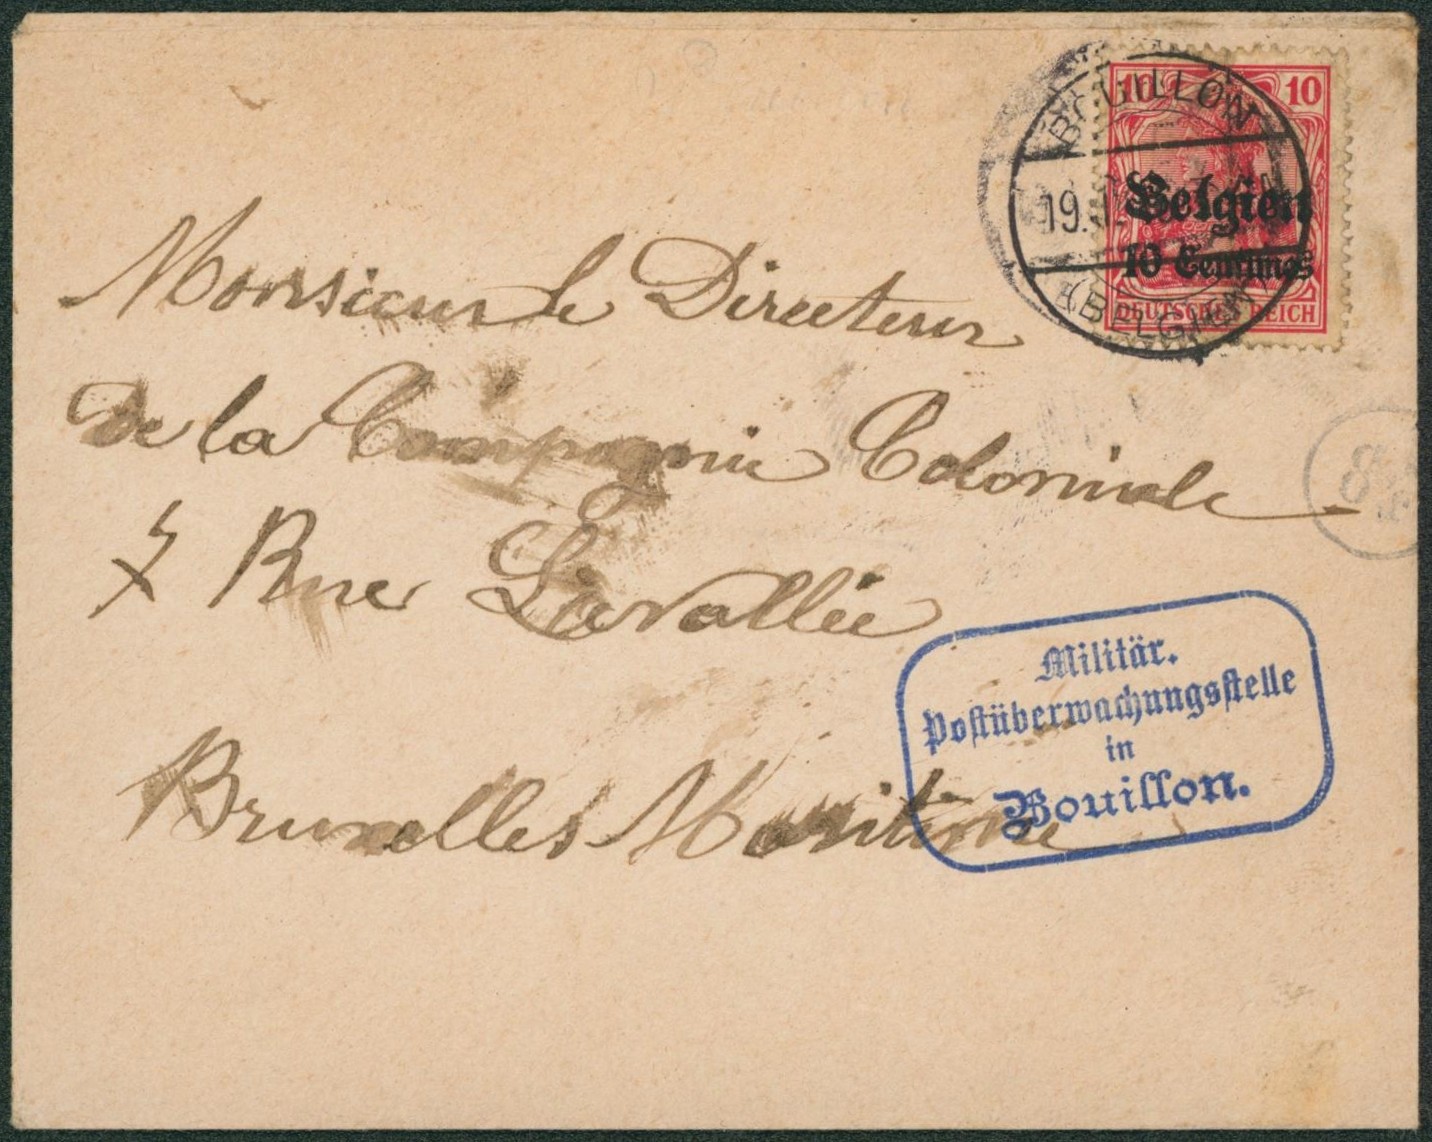 10 10
BOUILLON
19.
Belgien
10 Centimes
(BELGIEN)
DEUTSCHES REICH
Monsieur le Directeur
de la Compagnie Coloniale
Rue Lavallée
Bruxelles Maritime
Militär.
Postüberwachungsstelle
in
Bouillon.